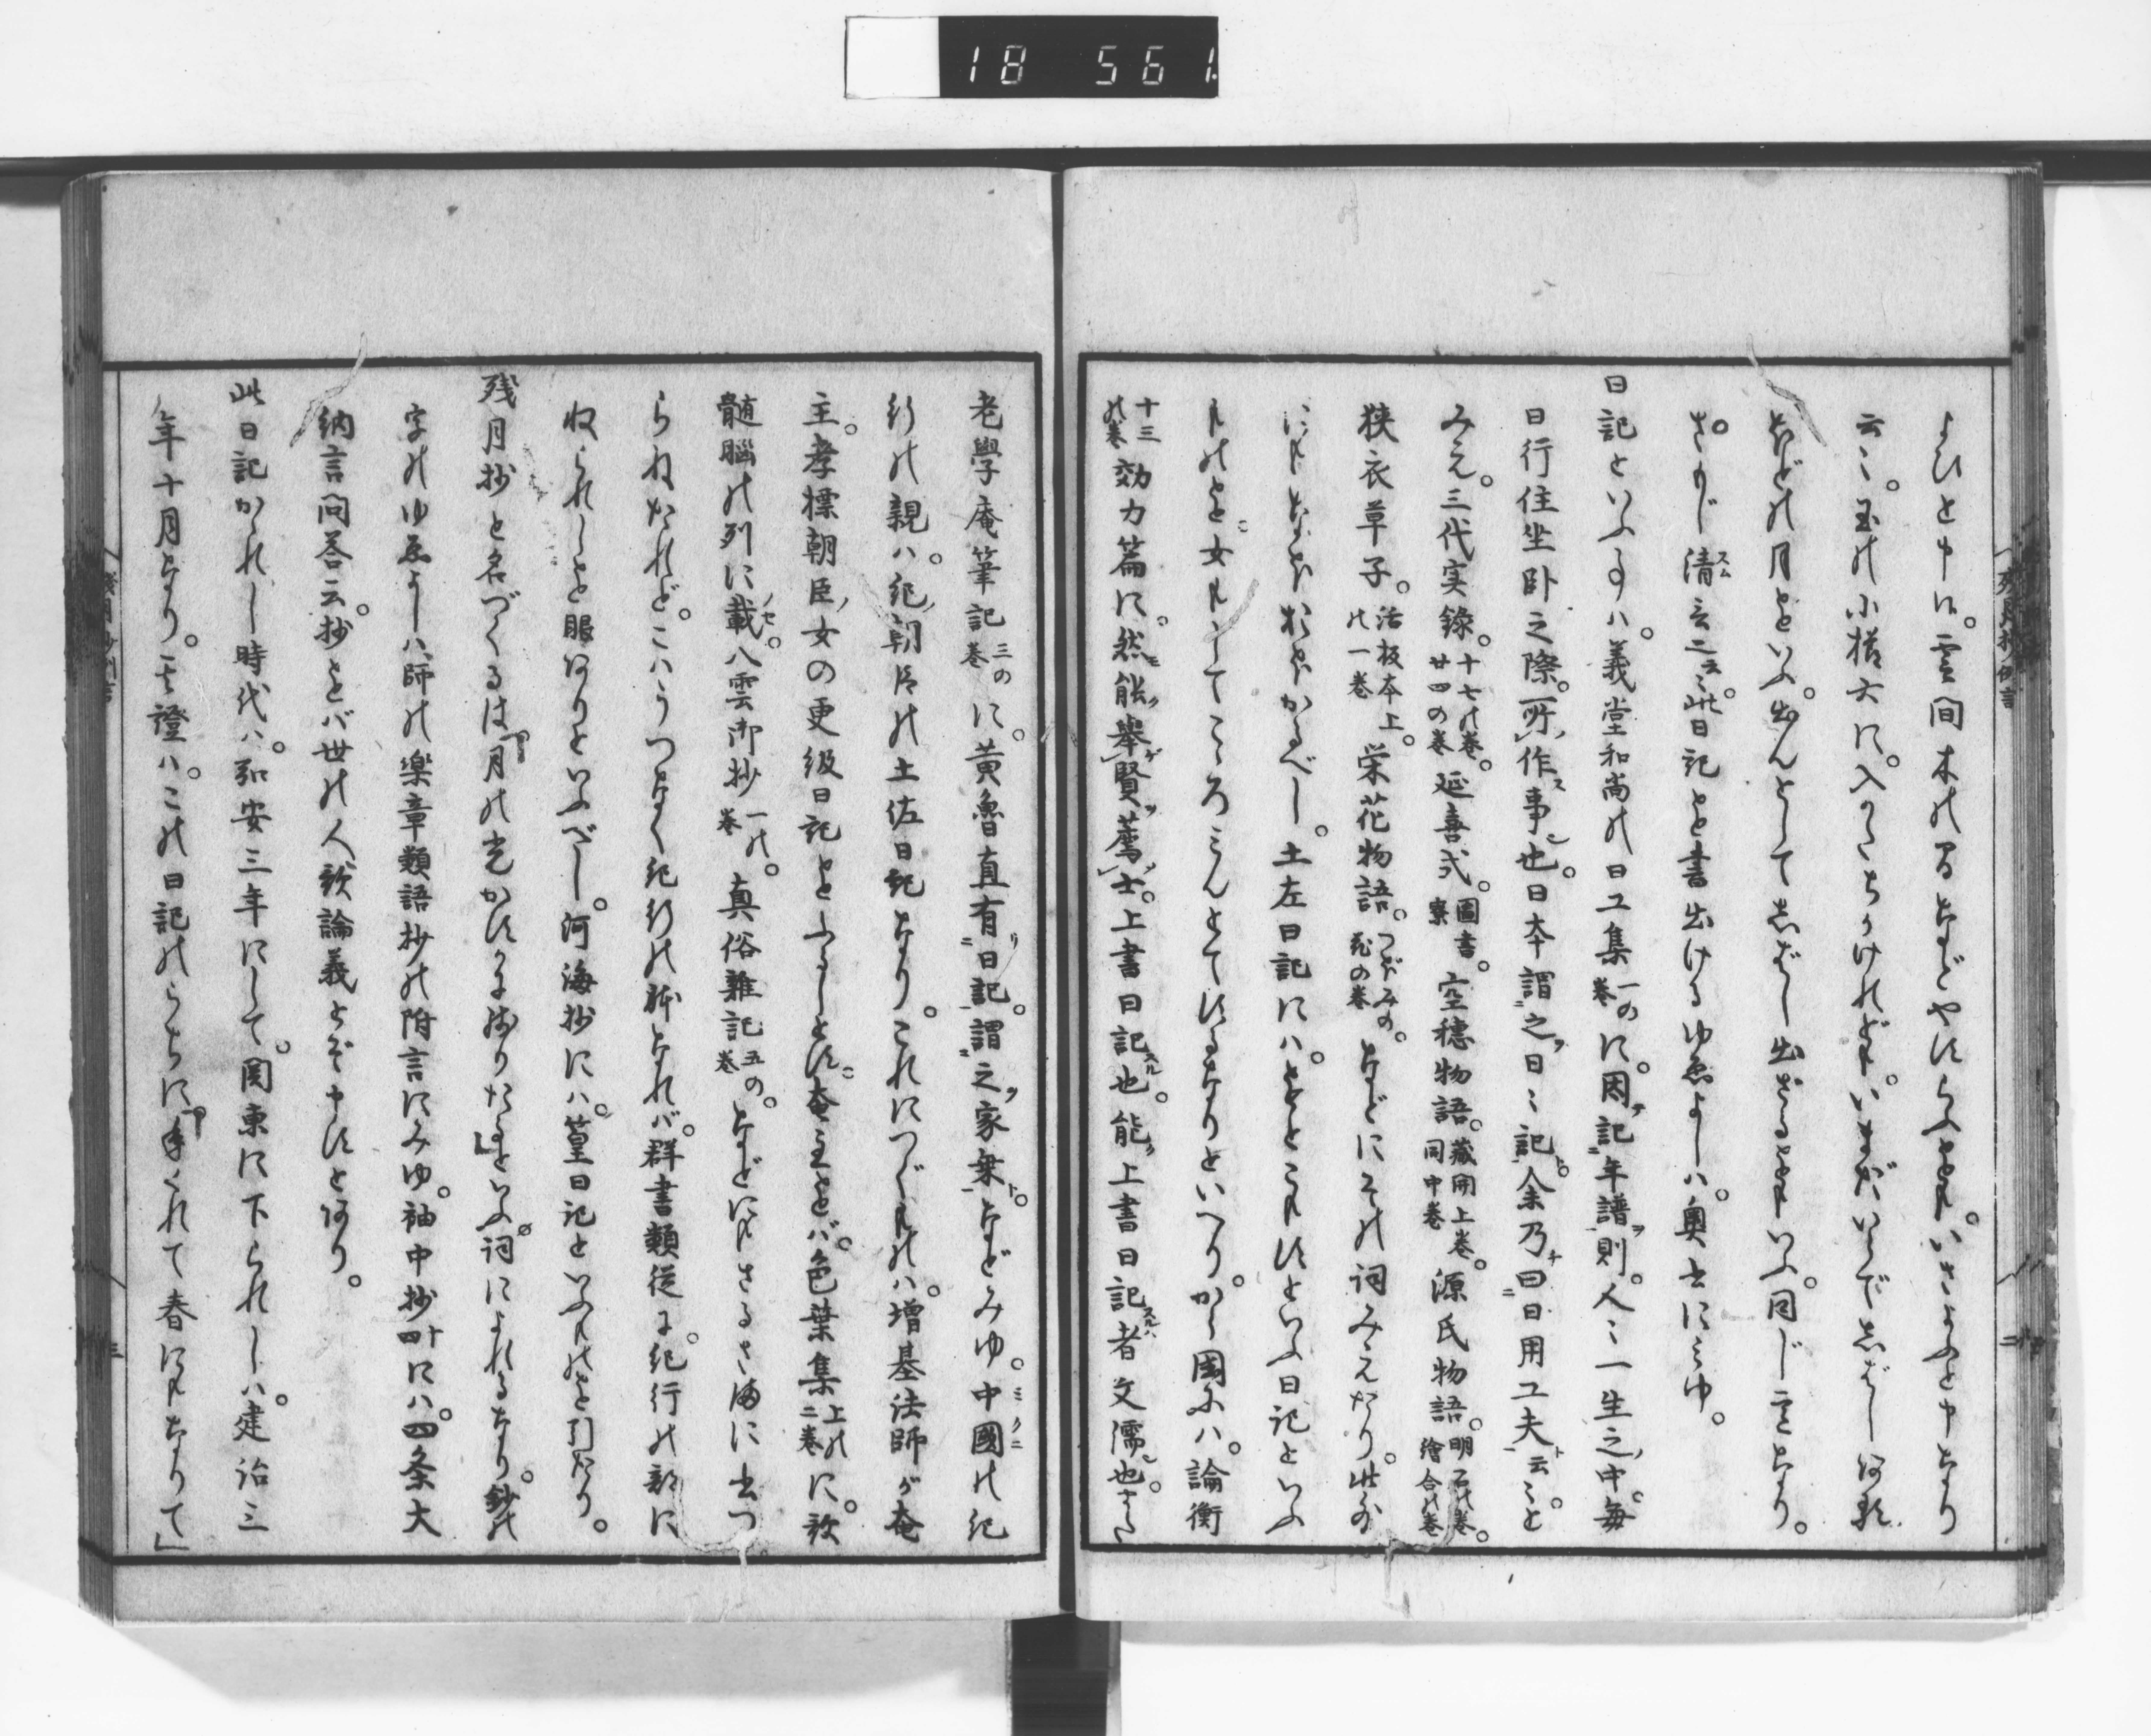 18 561
よひと申に。雲間木のるなどやすらふをも。いさよふと申なり
云々。玉の小櫛六に。入かたちかけれども。いまだいらでしばしある
などの月をいふ。出んとしてしばし出ざるをもいふ。同じ意なり。
清
日記といふ事ハ。義堂和尚の日工集一の巻に。因記年譜則。人々一生之中。毎
日行住坐卧之際。所作事也。日本謂之日々記。余乃曰日用工夫云々と
みえ。三代実録。十七の巻。廿四の巻延喜式。圖書寮。空穂物語。蔵開上巻。同中巻源氏物語。明石の巻。繪合の巻
狭衣草子。活板本上の一巻。栄花物語。つぼみの。花の巻などにその詞みえたり。此外
にもなほおほかるべし。土左日記にハ。をとこもすといふ日記といふ
ものを。女もしてこころみんとてするなりといへり。から國にハ。論衡
十三の巻効力篇に。然能舉賢薦士。上書日記也。能上書日記者文儒也。また
老學庵筆記三の巻に。黄魯直有日記。謂之家乗。などみゆ。中國の紀
行の親ハ。紀朝臣の土佐日記なり。これにつぐものハ。増基法師が菴
主。孝標朝臣女の更級日記をとふるしとす。菴主をバ。色葉集上の二巻に。歌
髄腦の列に載。八雲御抄一の巻。真俗雑記五の巻。などにもさるさまに出つ
らねたれど。こハうつなく紀行の躰なれバ。群書類従に。紀行の部に
収られしを眼ありといふべし。河海抄にハ。篁日記といふものを引たり。
残月抄と名づくるは。「月の光かすかに残りたる」といふ。詞によれるなり。鈔の
字のゆゑよしハ。師の樂章類語抄の附言にみゆ。袖中抄十四にハ。四条大
納言問答云。抄をバ世の人歌論義とぞ申すとあり。
此日記かかれし時代ハ。弘安三年にして。関東に下られしハ。建治三
年十月なり。其證ハ。この日記のうちに。「年くれて春にもなりて」
残月抄例言
二
三